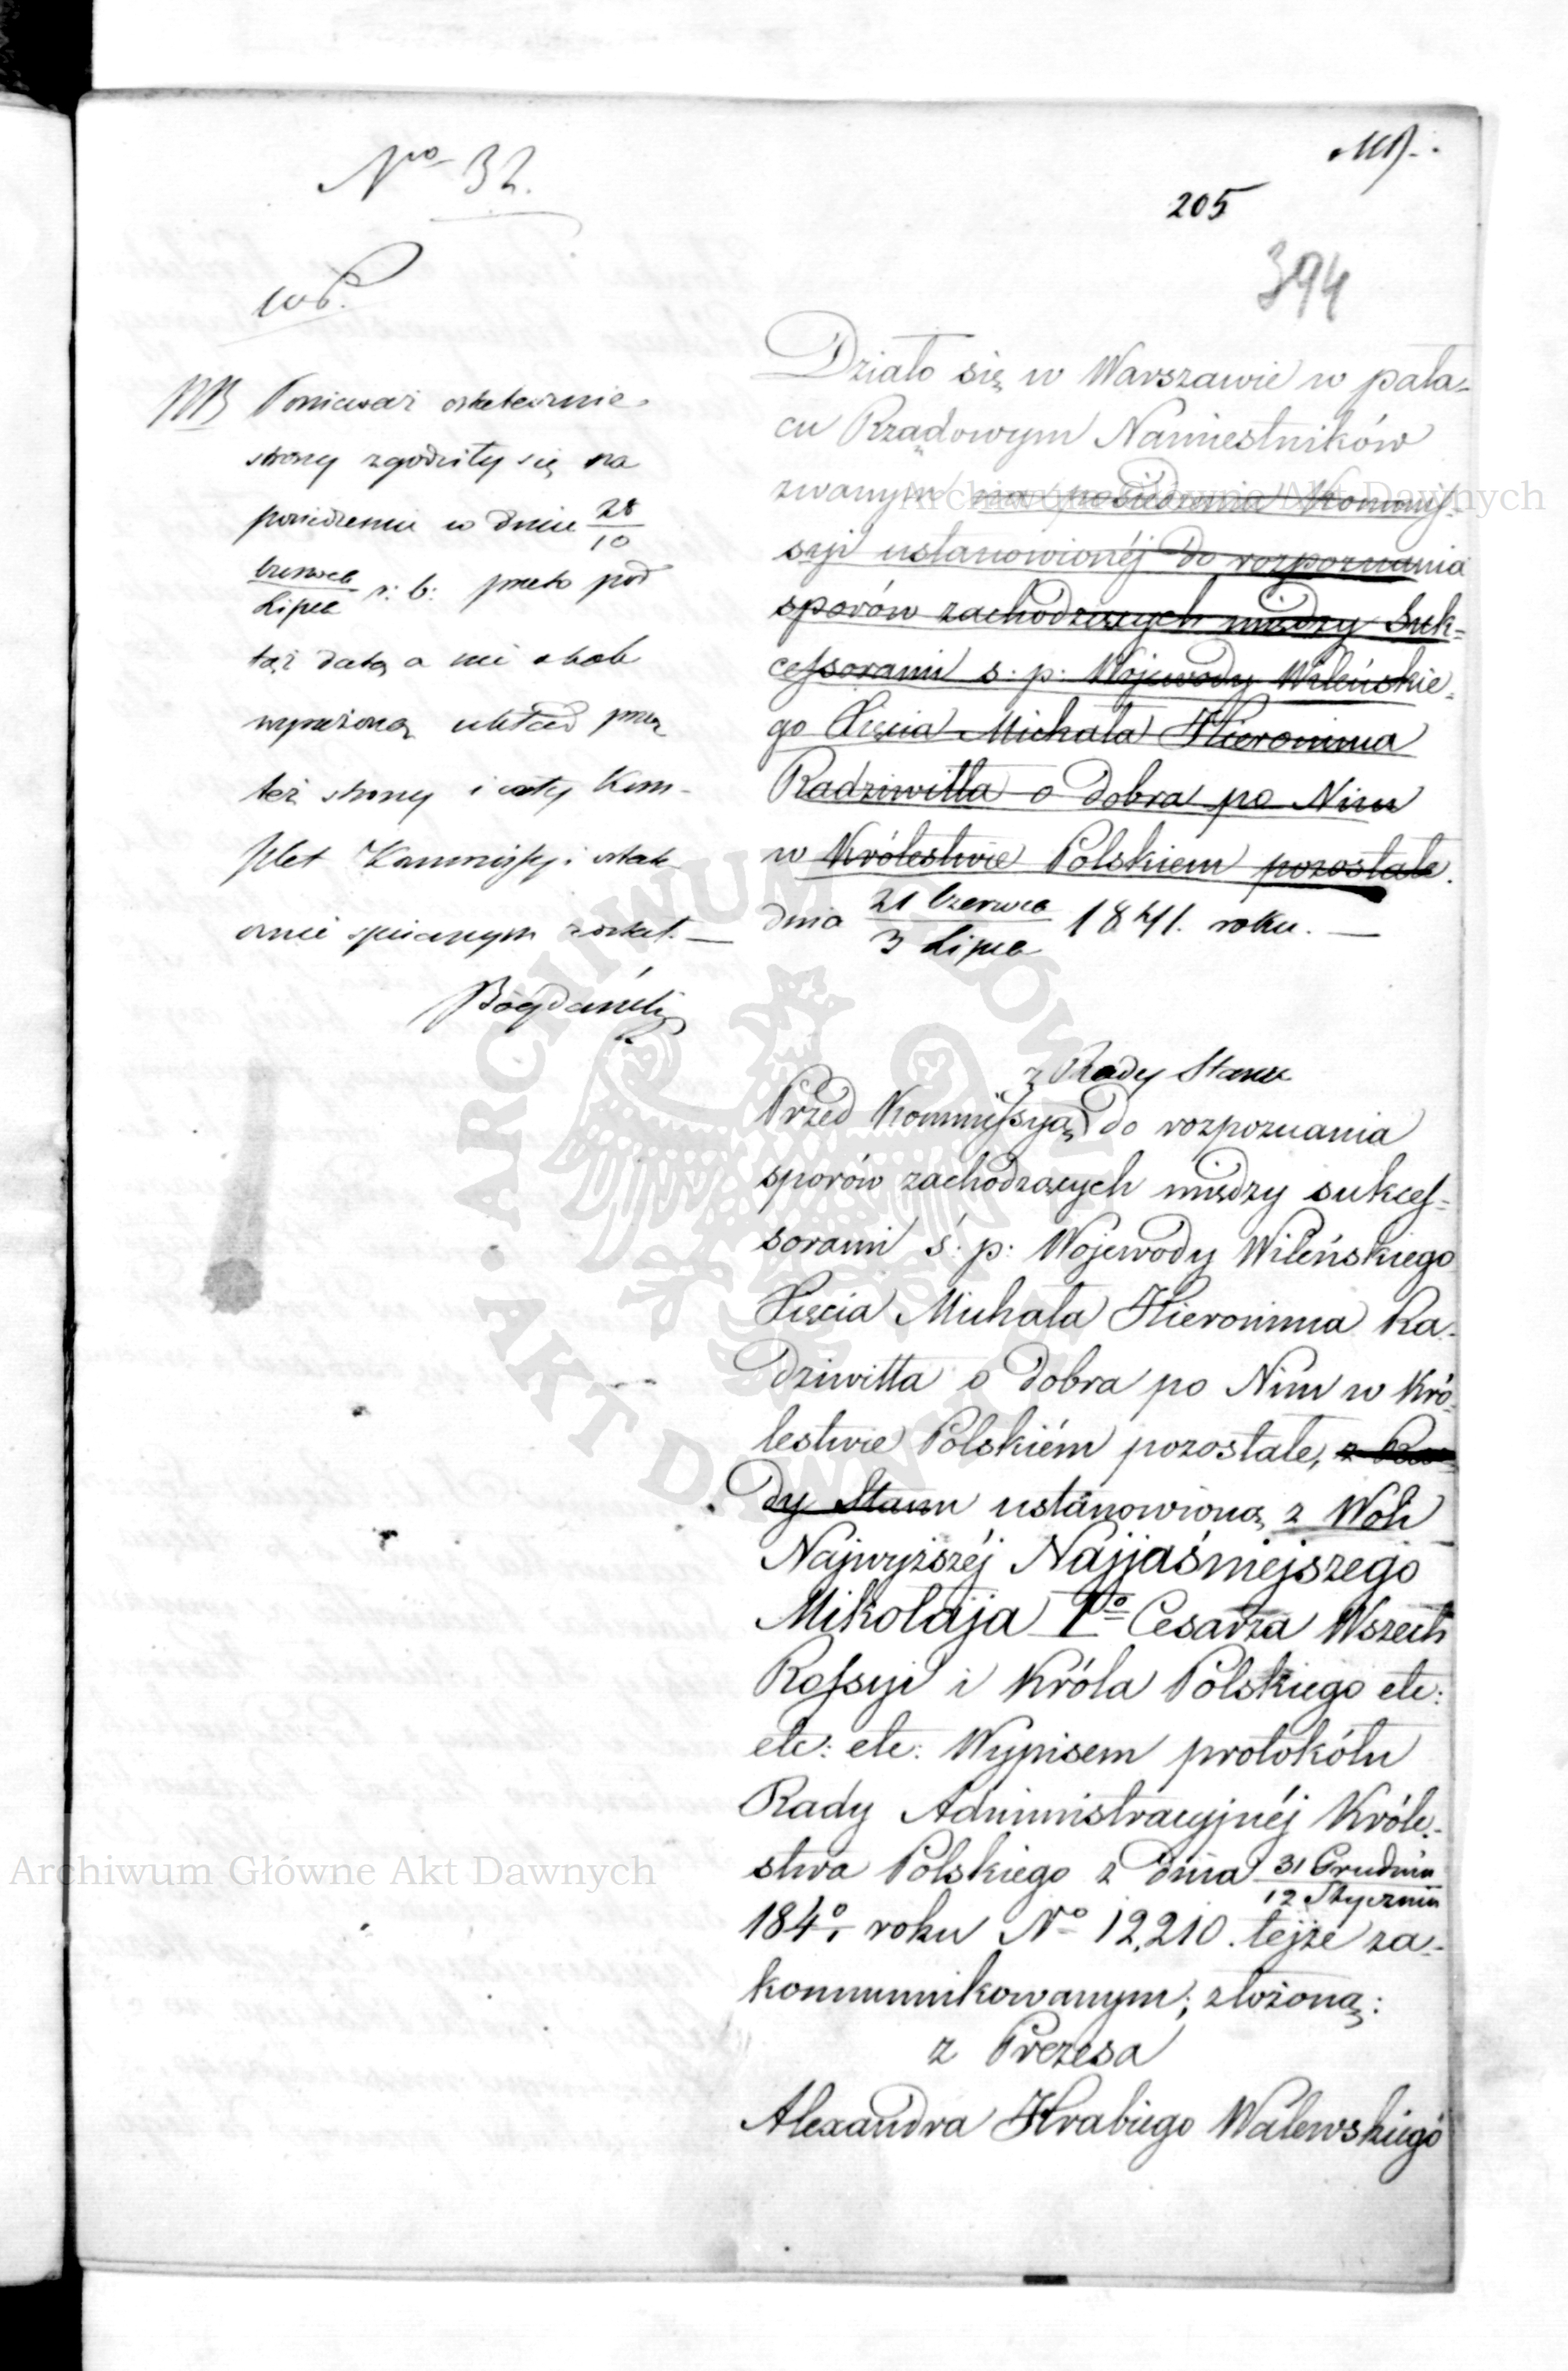 No 32.
MB.
205
394
NB Ponieważ ostatecznie
strony zgodziły się na
posiedzeniu w dniu 28/10
Czerwca/Lipca r: b: przeto pod
tąż datą a nie obok
wyrażoną układ przez
też strony i cały Kom-
plet Kommissyi ostate
cznie spisanym został. —
Działo się w Warszawie w pała-
cu Rządowym Namiestników
zwanym na posiedzeniu Kommis-
syi ustanowionéj do rozpoznania
sporów zachodzących między Suk-
cessorami s. p: Wojewody Wileńskie-
go Xięcia Michała Hieronima
Radziwiłła o dobra po Nim
w Królestwie Polskiem pozostałe.
dnia 21 Czerwca/3 Lipca 1841. roku. —
z Rady Stanu
Przed Kommissyą do rozpoznania
sporów zachodzących między sukces-
sorami ś. p: Wojewody Wileńskiego
Xięcia Michała Hieronima Ra-
dziwiłła o dobra po Nim w Kró-
lestwie Polskiém pozostałe, z Ra-
dy Stanu ustanowioną z Woli
Najwyższéj Najjaśniejszego
Mikołaja Igo Cesarza Wszech
Rossyi i Króla Polskiego etc:
etc: etc: Wypisem protokółu
Rady Administracyjnéj Króle-
stwa Polskiego z dnia 31 Grudnia/12 Stycznia
1840/1 roku No 12,210. tejże za-
kommunikowanym; złożoną:
z Prezesa
Alexandra Hrabiego Walewskiego
Archiwum Główne Akt Dawnych
Archiwum Główne Akt Dawnych
ARCHIWUM GŁÓWNE AKT DAWNYCH